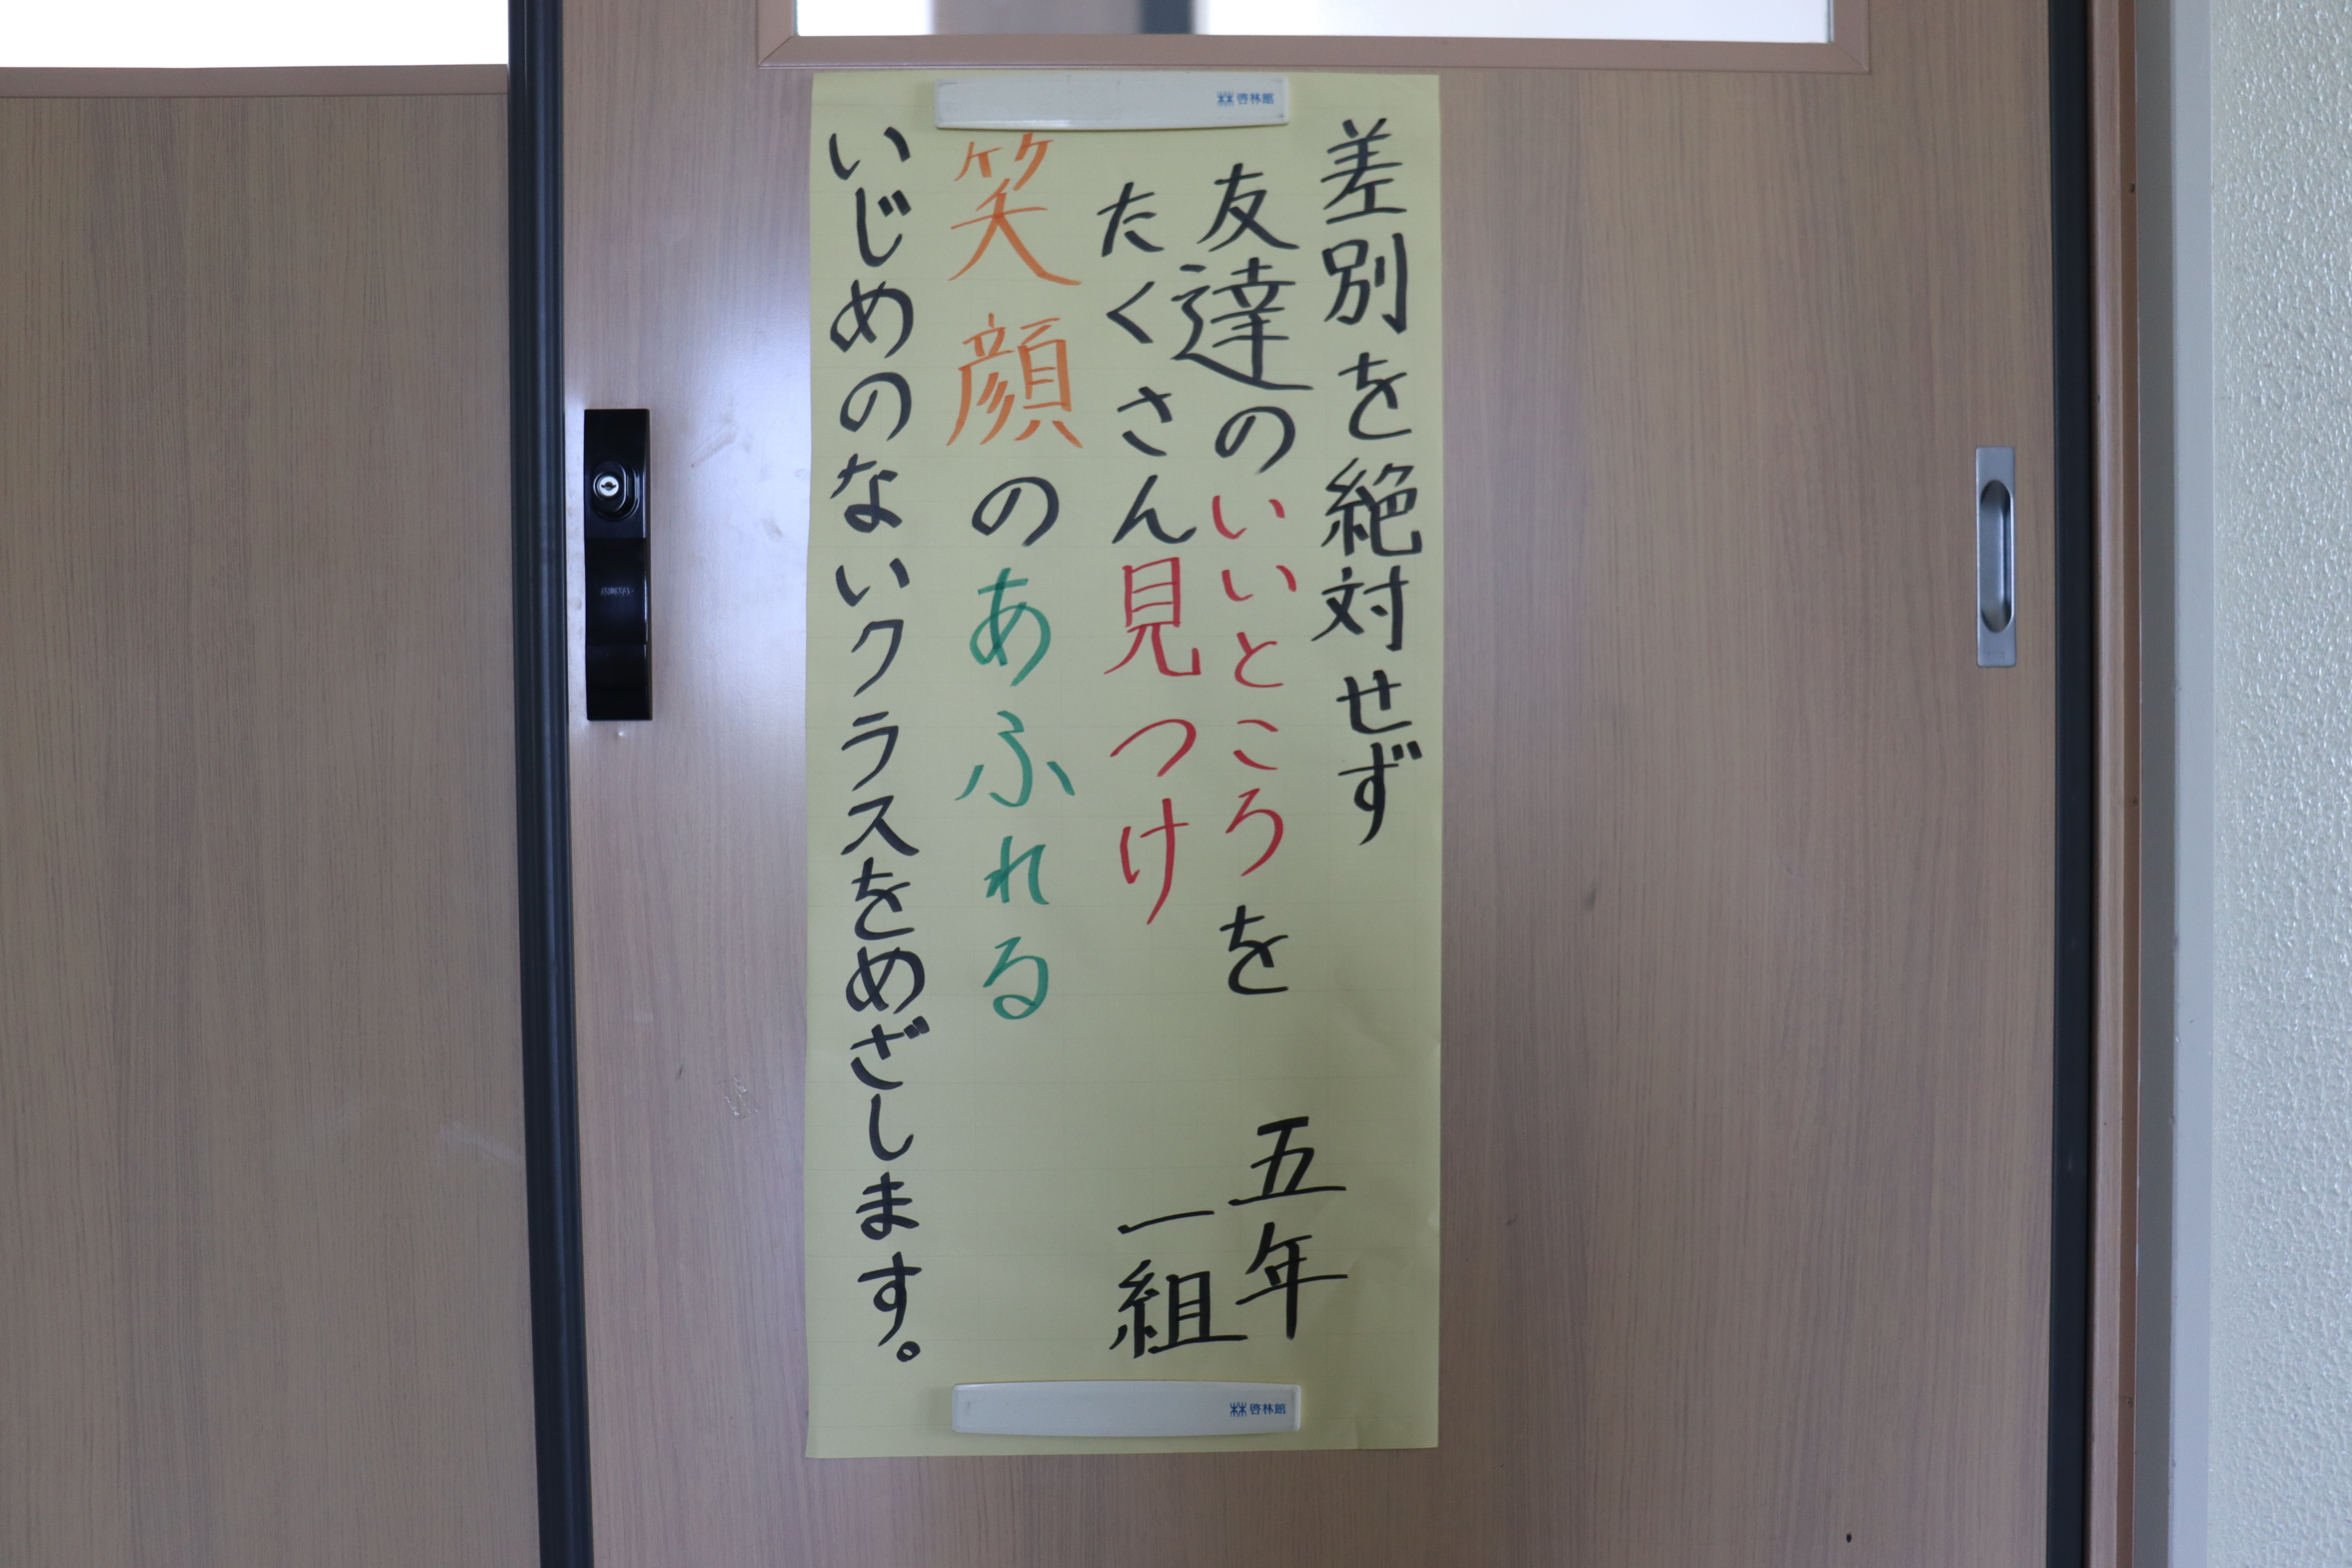 差別を絶対せず
友達のいいところを
たくさん見つけ
笑顔のあふれる
いじめのないクラスをめざします。
五年
一組
啓林館
啓林館